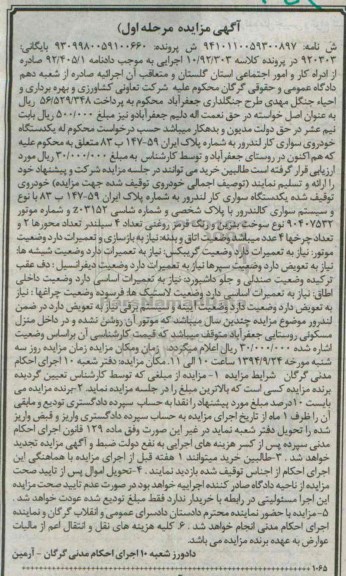 آگهی مزایده مرحله اول)
ش نامه: ۹۴۱۰۱۱۰۰۵۹۳۰۰۸۹۷ ش پرونده: ۹۳۰۹۹۸۰۰۵۹۱۰۰۶۶۰ بایگانی:
۹۲۰۳۰۳ در پرونده کلاسه ۱۰/۹۲/۳۰۳ اجرایی به موجب دادنامه ۹۲/۴۰۵/۱ صادره
از اداره کار و امور اجتماعی استان گلستان و متعاقب آن اجرائیه صادره از شعبه دهم
دادگاه عمومی و حقوقی گرگان محکوم علیه شرکت تعاونی کشاورزی و بهره برداری و
احیاء جنگل مهدی طرح جنگلداری جعفرآباد محکوم به پرداخت ۵۶/۵۲۹/۳۴۸ ریال
به عنوان اصل خواسته در حق نعمت اله دلیم جعفرآبادو نیز مبلغ ۵۰۰/۰۰۰ ریال بابت
نیم عشر در حق دولت مدیون و بدهکار میباشد حسب درخواست محکوم له یکدستگاه
خودروی سواری کار لندرور به شماره پلاک ایران ۵۹-۱۴۷ ب ۸۳ متعلق به محکوم علیه
که هم اکنون در روستای جعفرآباد و توسط کارشناس به مبلغ ۳۰/۰۰۰/۰۰۰ ریال مورد
ارزیابی قرار گرفته است طالبین خرید می توانند در جلسه مزایده شرکت و پیشنهاد خود
را ارائه و تسلیم نمایند (توصیف اجمالی خودروی توقیف شده جهت مزایده) خودروی
توقیف شده یکدستگاه سواری کار لندرور به شماره پلاک ایران ۵۹-۱۴۷ ب ۸۳ با نوع
و سیستم سواری کالندرور با پلاک شخصی و شماره شاسی ۰۳۱۵۲ و شماره موتور
۹۰۴۰۷۵۳۲ نوع سوخت بنزین و رنگ قرمز روغنی تعداد ۴ سیلندر تعداد محورها ۲ و
تعداد چرخها ۴ عدد میباشد وضعیت اتاق و بدنه: نیاز به بازسازی و تعمیرات دارد وضعیت
موتور: نیاز به تعمیرات دارد وضعیت گیربکس: نیاز به تعمیرات دارد وضعیت شیشه ها:
نیاز به تعویض دارد وضعیت سپرها نیاز به تعمیرات دارد وضعیت دیفرانسیل: دف عقب
ترکیده وضعیت صندلی و جلو داشبورد: نیاز به تعمیرات اساسی دارد وضعیت داخلی
اطاق: نیاز به تعمیرات اساسی دارد وضعیت لاستیک ها: فرسوده وضعیت چراغها : نیاز
به تعویض دارد وضعیت آیینه و سیستم برقی نیاز به تعویض دارد در ضمن
لندرور موضوع مزایده چندین سال میباشد که موتور آن روشن نشده و در داخل منزل
مسکونی روستایی جعفرآباد متوقف میباشد که قیمت کارشناسی آن براساس وضعیت
اشاره شده ۳۰/۰۰۰/۰۰۰ ریال اعلام میگردد. زمان ومکان مزایده زمان مزایده روز سه
شنبه مورخه ۱۳۹۴/۹/۲۴ ساعت ۱۰ الی ۱۱. مکان مزایده: دفتر شعبه ۱۰ اجرای احکام
مدنی گرگان شرایط مزایده ۱- مزایده از مبلغی که توسط کارشناس تعیین گردیده
برنده مزایده کسی است که بالاترین مبلغ را در جلسه مزایده نماید. ۲-برنده مزایده می
بایست ۱۰درصد مبلغ مورد پیشنهاد را نقدا به حساب سپرده دادگستری تودیع و مابقی
آن را ظرف ۱ ماه از تاریخ اجرای مزایده به حساب سپرده دادگستری واریز و قبض واریز
شده را تحویل دفتر شعبه نماید در غیر این صورت وفق ماده ۱۲۹ قانون اجرای احکام
مدنی سپرده پس از کسر هزینه های اجرایی به نفع دولت ضبط و آگهی مزایده تجدید
خواهد شد . ۳-طالبین خرید میتوانند ۱ هفته قبل از اجرای مزایده با هماهنگی این
اجرای احکام از اجناس توقیف شده بازدید نمایند. ۴-تحویل اموال پس از تایید صحت
مزایده از ناحیه دادگاه صادر کننده اجراییه خواهد بود در صورت عدم تایید صحت مزایده
این اجرا مسئولیتی در رابطه با خریدار ندارد فقط مبلغ تودیع شده عودت خواهد شد .
۵-مزایده با حضور نماینده محترم دادستان دادسرای عمومی و انقلاب گرگان و نماینده
اجرای احکام مدنی انجام خواهد شد . ۶. کلیه هزینه های نقل و انتقال اعم از مالیات
عوارض به عهده برنده مزایده می باشد.
دادورز شعبه ۱۰ اجرای احکام مدنی گرگان - آرمین
۱۰۶۵